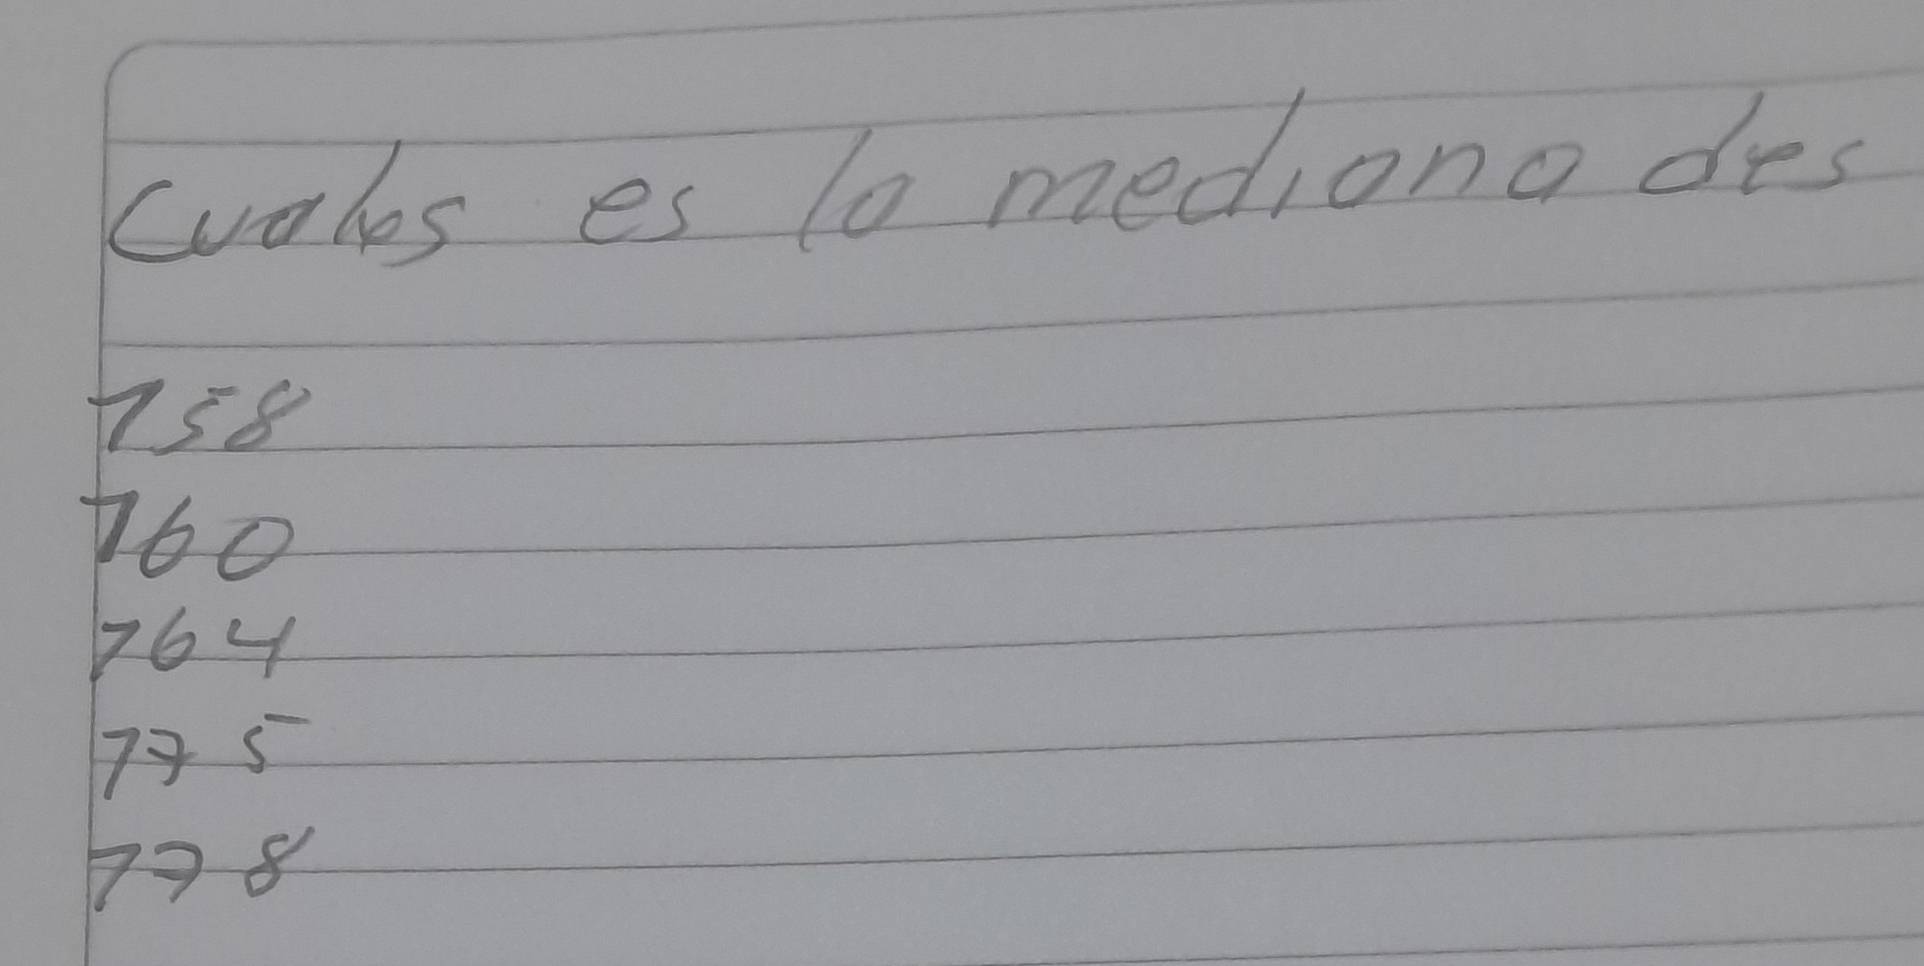 Cuales es la mediana des
758
760
764
775
778